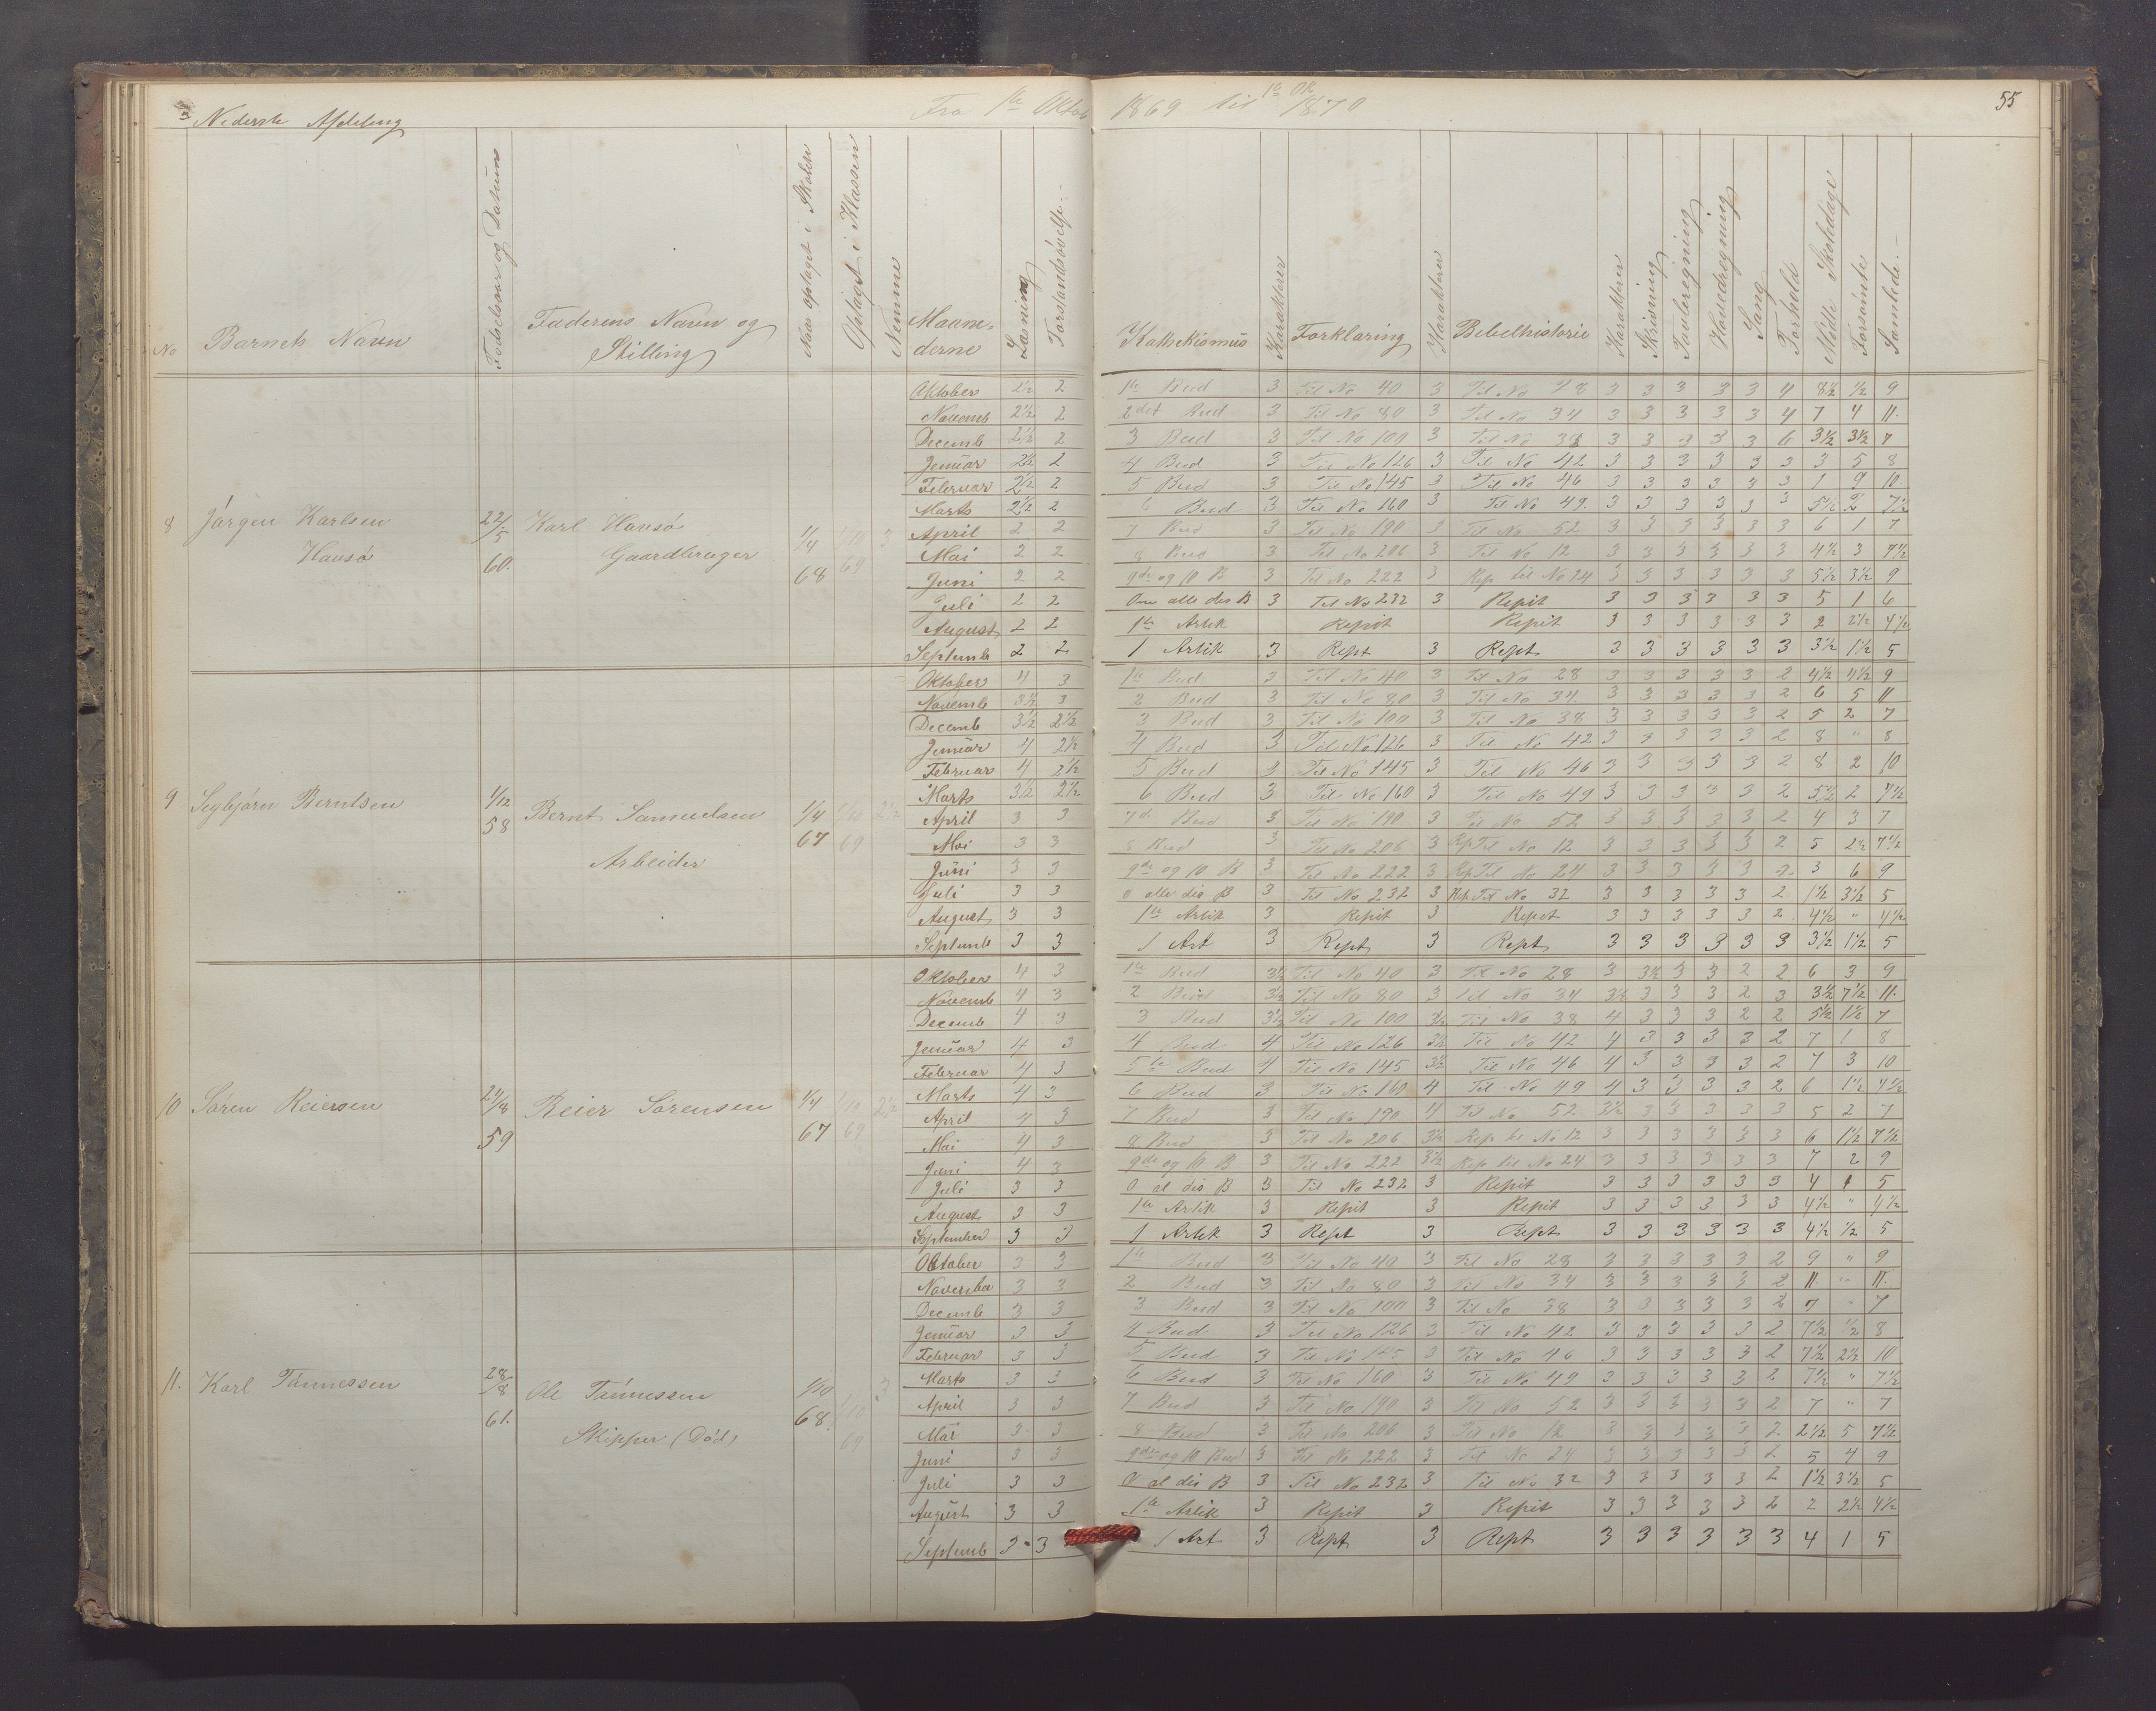 Nederste Afdeling Fra 1te Oktob 1869 til 1te Ok 1870 55
No Barnets Navn Fødselsaar og Datum Faderens Navn og Stilling Naar optaget i Skolen Optagt i Klassen Nemme Maanederne Læsning Forstandsøvelse Kathekismus Karakterer Forklaring Karakterer Bibelhistorie Karakterer Skrivning Tavleregning Hovedregning Sang Forhold Mødte Skoledage Forsømte Samlede
8 Jørgen Karlsen Hausø 22/5 60. Karl Hausø Gaardbruger 1/4 68 1/10 69 3
Oktober 2½ 2 1te Bud 3 Til No 40 3 Til No 28 3 3 3 3 3 4 8½ ½ 9
Novemb 2½ 2 2det Bud 3 Til No 80 3 Til No 34 3 3 3 3 3 4 7 4 11.
Decemb 2½ 2 3 Bud 3 Til No 100 3 Til No 38 3 3 3 3 3 6 3½ 3½ 7
Januar 2½ 2 4 Bud 3 Til No 126 3 Til No 42 3 3 3 3 3 3 3 5 8
Februar 2½ 2 5 Bud 3 Til No 145 3 Til No 46 3 3 3 3 3 3 1 9 10
Marts 2½ 2 6 Bud 3 Til No 160 3 Til No 49. 3 3 3 3 3 3 5½ 2 7½
April 2 2 7 Bud 3 Til No 190 3 Til No 52 3 3 3 3 3 3 6 1 7
Mai 2 2 8 Bud 3 Til No 206 3 Til No 12 3 3 3 3 3 3 4½ 3 7½
Juni 2 2 9de og 10 B 3 Til No 222 3 Rep til No 24 3 3 3 3 3 3 5½ 3½ 9
Juli 2 2 Om alle dis B 3 Til No 232 3 Repit 3 3 3 3 3 3 5 1 6
August 2 2 1te Artik Repit Repit 3 3 3 3 3 3 2 2½ 4½
Septemb 2 2 1 Artik 3 Rept 3 Rept 3 3 3 3 3 3 3½ 1½ 5
9 Segbjørn Berntsen 1/12 58 Bernt Samuelsen Arbeider 1/4 67 1/10 69 2½
Oktober 4 3 1te Bud 3 Til No 40 3 Til No 28 3 3 3 3 3 2 4½ 4½ 9
Novemb 3½ 3 2 Bud 3 Til No 80 3 Til No 34 3 3 3 3 3 2 6 5 11
Decemb 3½ 2½ 3 Bud 3 Til No 100 3 Til No 38 3 3 3 3 3 2 5 2 7
Januar 4 2½ 4 Bud 3 Til No 126 3 Til No 42 3 3 3 3 3 2 8 " 8
Februar 4 2½ 5 Bud 3 Til No 145 3 Til No 46 3 3 3 3 3 2 8 2 10
Marts 3½ 2½ 6 Bud 3 Til No 160 3 Til No 49 3 3 3 3 3 2 5½ 2 7½
April 3 3 7d Bud 3 Til No 190 3 Til No 52 3 3 3 3 3 2 4 3 7
Mai 3 3 8 Bud 3 Til No 206 3 Rp Til No 12 3 3 3 3 3 2 5 2½ 7½
Juni 3 3 9de og 10 B 3 Til No 222 3 Rp Til No 24 3 3 3 3 3 2 3 6 9
Juli 3 3 O alle dis B 3 Til No 232 3 Rp Til No 32 3 3 3 3 3 2 1½ 3½ 5
August 3 3 1te Artik 3 Repit 3 Repit 3 3 3 3 3 2 4½ " 4½
Septemb 3 3 1 Art 3 Rept 3 Rept 3 3 3 3 3 3 3½ 1½ 5
10 Søren Reiersen 24/8 59 Reier Sørensen 1/4 67 1/10 69 2½
Oktober 4 3 1te Bud 3½ Til No 40 3 Til No 28 3 3½ 3 3 2 2 6 3 9
Novemb 4 3 2 Bud 3½ Til No 80 3 Til No 34 3½ 3 3 3 2 3 3½ 7½ 11.
Decemb 4 3 3 Bud 3½ Til No 100 3½ Til No 38 4 3 3 3 2 2 5½ 1½ 7
Januar 4 3 4 Bud 4 Til No 126 3½ Til No 42 4 3 3 3 3 2 7 1 8
Februar 4 3 5te Bud 4 Til No 145 3½ Til No 46 4 3 3 3 3 2 7 3 10
Marts 4 3 6 Bud 3 Til No 160 4 Til No 49 4 3 3 3 3 2 6 1½ 7½
April 4 3 7 Bud 3 Til No 190 4 Til No 52 3½ 3 3 3 3 3 5 2 7
Mai 4 3 8 Bud 3 Til No 206 3½ Rep til No 12 3 3 3 3 3 3 6 1½ 7½
Juni 4 3 9de og 10 B 3 Til No 222 3½ Rep til No 24 3 3 3 3 3 3 7 2 9
Juli 3 3 O al dis B 3 Til No 232 3 Repit 3 3 3 3 3 3 4 1 5
August 3 3 1te Artik 3 Repit 3 Repit 3 3 3 3 3 3 4½ " 4½
September 3 3 1 Artik 3 Rept 3 Rept 3 3 3 3 3 3 4½ ½ 5
11. Karl Tønnessen 28/8 61. Ole Tønnessen Skipper (Død) 1/10 68. 1/10 69 3
Oktober 3 3 1te Bud 3 Til No 40 3 Til No 28 3 3 3 3 3 2 9 " 9
November 3 3 2 Bud 3 Til No 80 3 Til No 34 3 3 3 3 3 2 11. " 11.
Decemb 3 3 3 Bud 3 Til No 100 3 Til No 38 3 3 3 3 3 2 7 " 7
Januar 3 3 4 Bud 3 Til No 126 3 Til No 42 3 3 3 3 3 2 7½ ½ 8
Februar 3 3 5 Bud 3 Til No 145 3 Til No 46 3 3 3 3 3 2 7½ 2½ 10
Marts 3 3 6 Bud 3 Til No 160 3 Til No 49 3 3 3 3 3 2 7½ " 7½
April 3 3 7 Bud 3 Til No 190 3 Til No 52 3 3 3 3 3 2 7 " 7
Mai 3 3 8 Bud 3 Til No 206 3 Til No 12 3 3 3 3 3 2 2½ 5 7½
Juni 3 3 9de og 10 Bud 3 Til No 222 3 Til No 24 3 3 3 3 3 2 5 4 9
Juli 3 3 O al dis B 3 Til No 232 3 Til No 32 3 3 3 3 3 2 1½ 3½ 5
August 3 3 1te Artik 3 Repit 3 Repit 3 3 3 3 3 2 2 2½ 4½
Septemb 3 3 1 Art 3 Rept 3 Rept 3 3 3 3 3 3 4 1 5